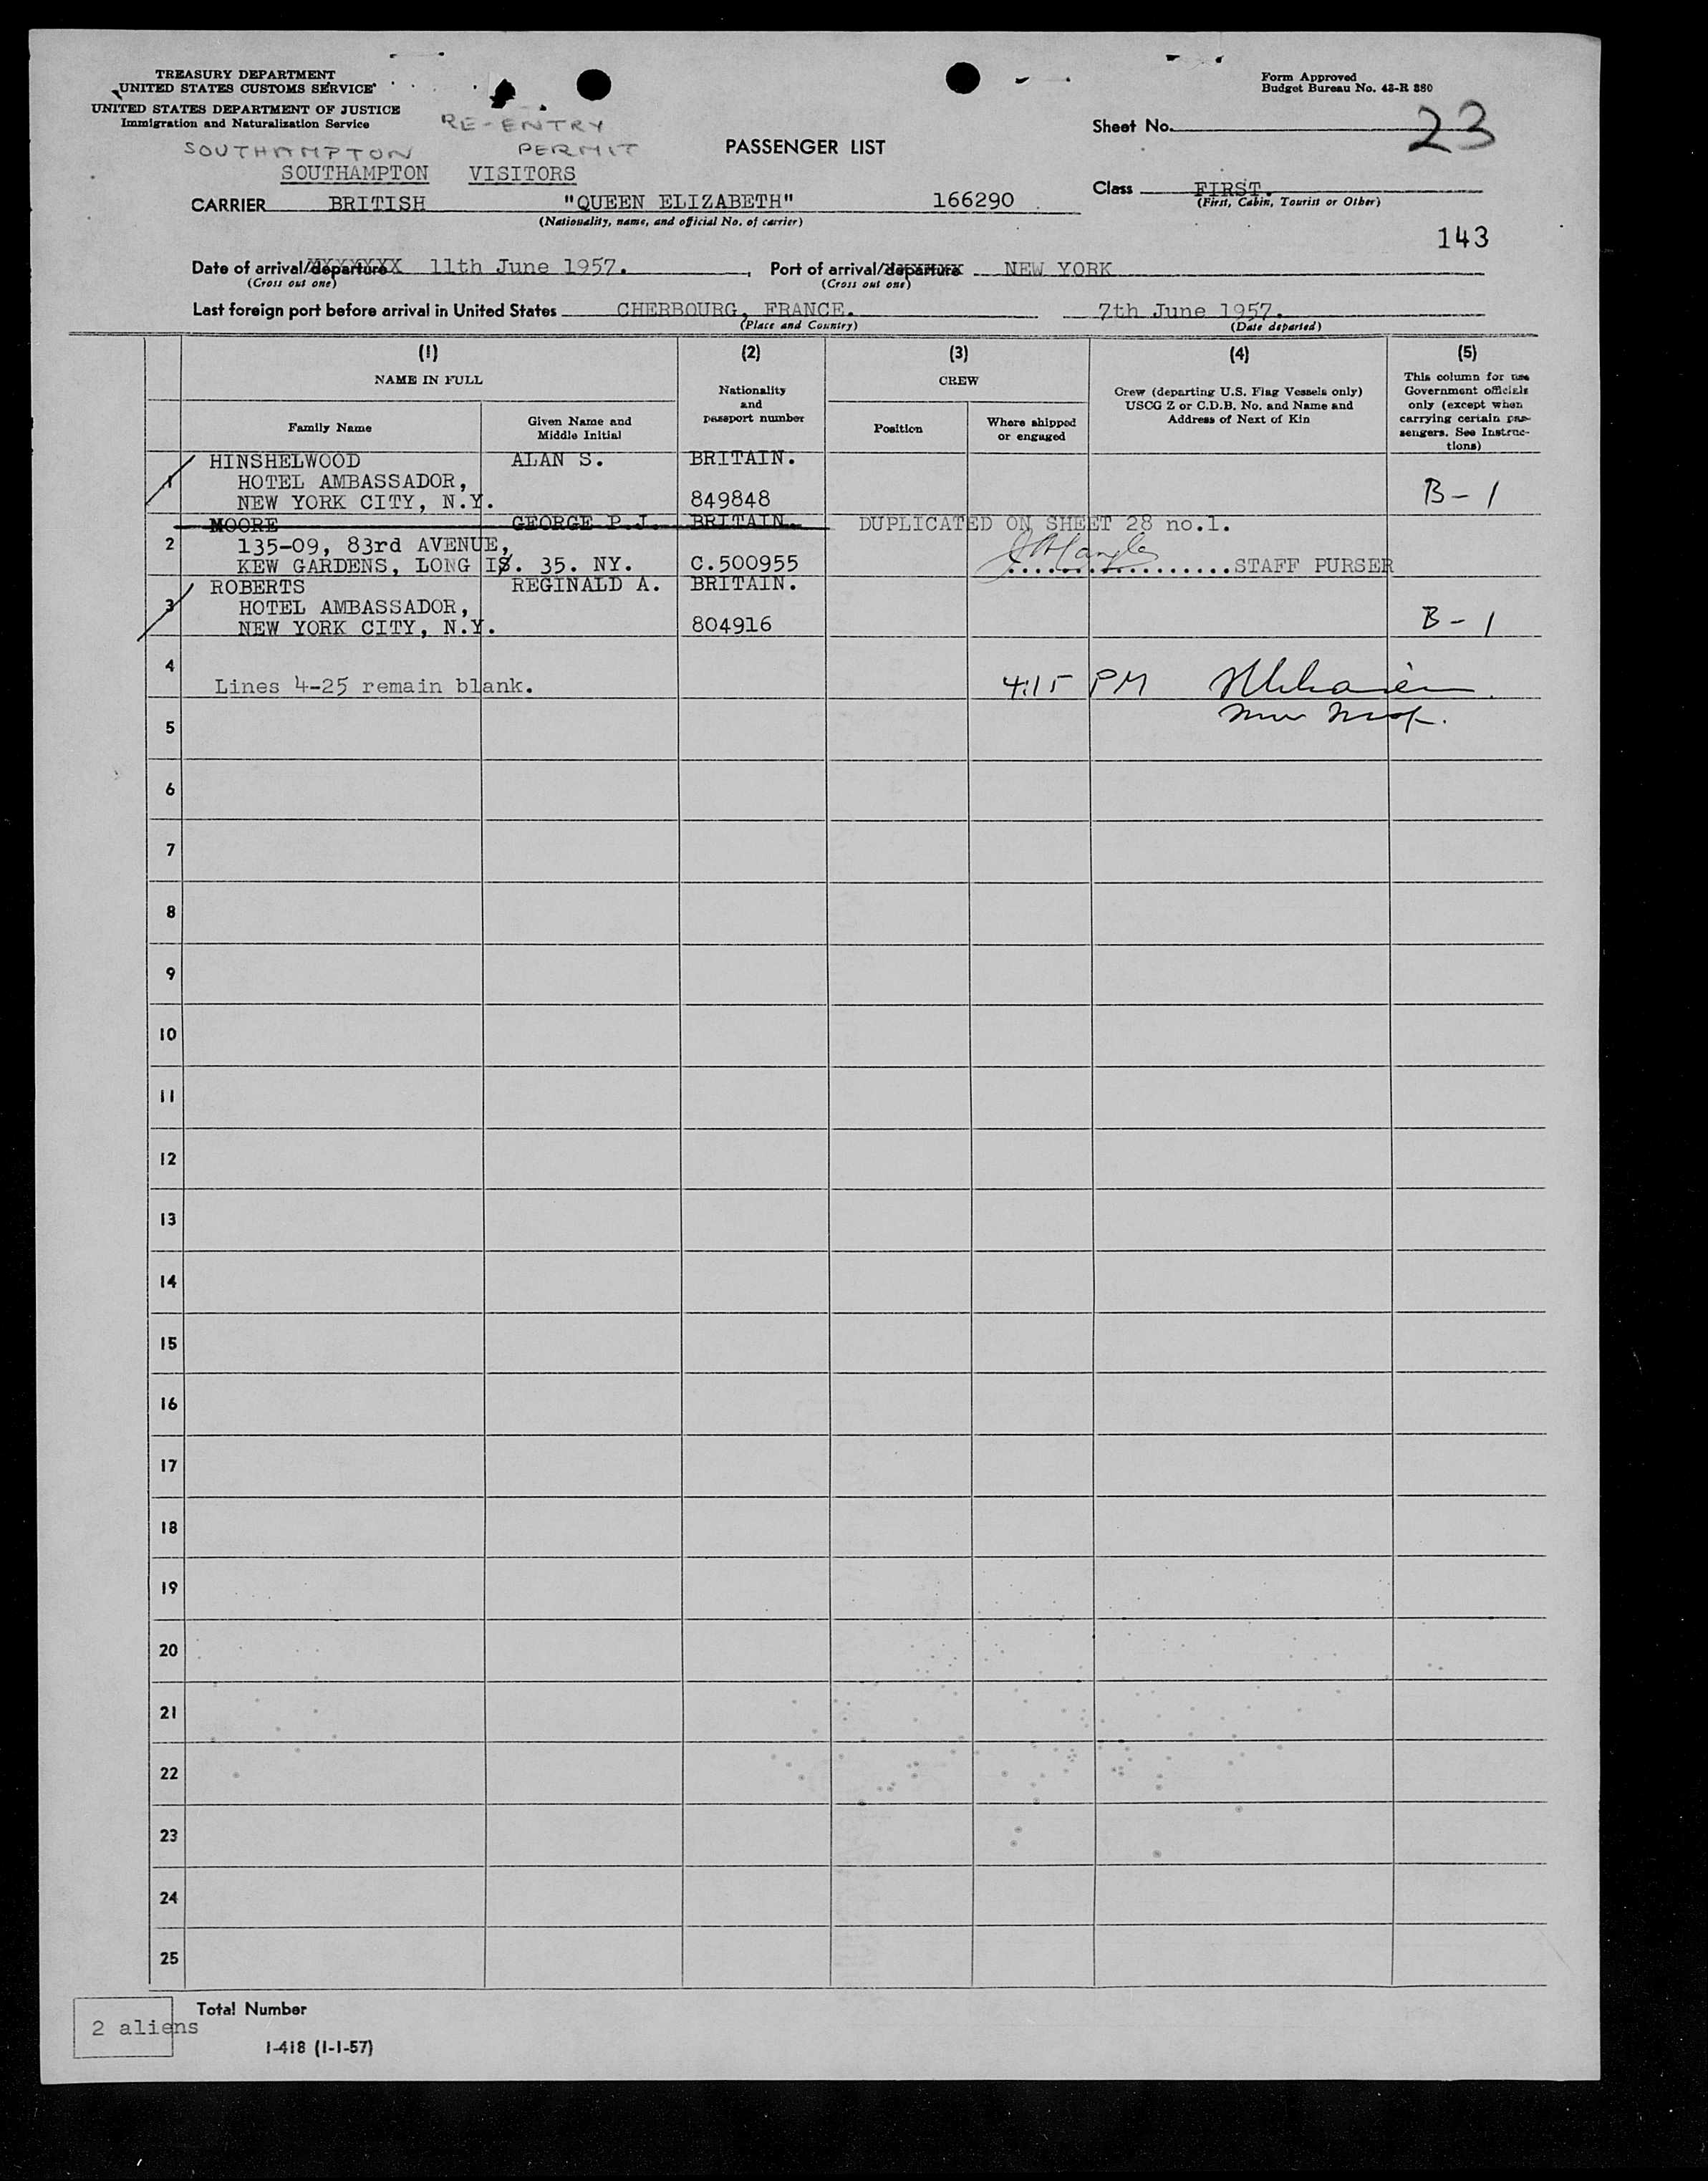 TREASURY DEPARTMENT
UNITED STATES CUSTOMS SERVICE
UNITED STATES DEPARTMENT OF JUSTICE
Immigration and Naturalization Service
Form Approved
Budget Bureau No. 43-R 380
RE-ENTRY
PERMIT
SOUTHAMPTON
PASSENGER LIST
Sheet No. 23
SOUTHAMPTON VISITORS
CARRIER BRITISH "QUEEN ELIZABETH" 166290
(Nationality, name, and official No. of carrier)
Class FIRST.
(First, Cabin, Tourist or Other)
143
Date of arrival/departure XXXXXXX 11th June 1957. , Port of arrival/departure NEW YORK
(Cross out one) (Cross out one)
Last foreign port before arrival in United States CHERBOURG, FRANCE. 7th June 1957.
(Place and Country) (Date departed)
(1) (2) (3) (4) (5)
NAME IN FULL
Family Name
Given Name and
Middle Initial
Nationality
and
passport number
CREW
Position
Where shipped
or engaged
Crew (departing U.S. Flag Vessels only)
USCG Z or C.D.B. No. and Name and
Address of Next of Kin
This column for use
Government officials
only (except when
carrying certain pas-
sengers. See Instruc-
tions)
HINSHELWOOD ALAN S. BRITAIN.
1 HOTEL AMBASSADOR,
NEW YORK CITY, N.Y. 849848 B-1
MOORE GEORGE P.J. BRITAIN. DUPLICATED ON SHEET 28 no.1.
2 135-09, 83rd AVENUE,
KEW GARDENS, LONG IS. 35. NY. C.500955 .................STAFF PURSER
ROBERTS REGINALD A. BRITAIN.
3 HOTEL AMBASSADOR,
NEW YORK CITY, N.Y. 804916 B-1
4
Lines 4-25 remain blank. 4:15 PM
5
6
7
8
9
10
11
12
13
14
15
16
17
18
19
20
21
22
23
24
25
Total Number
2 aliens
I-418 (1-1-57)